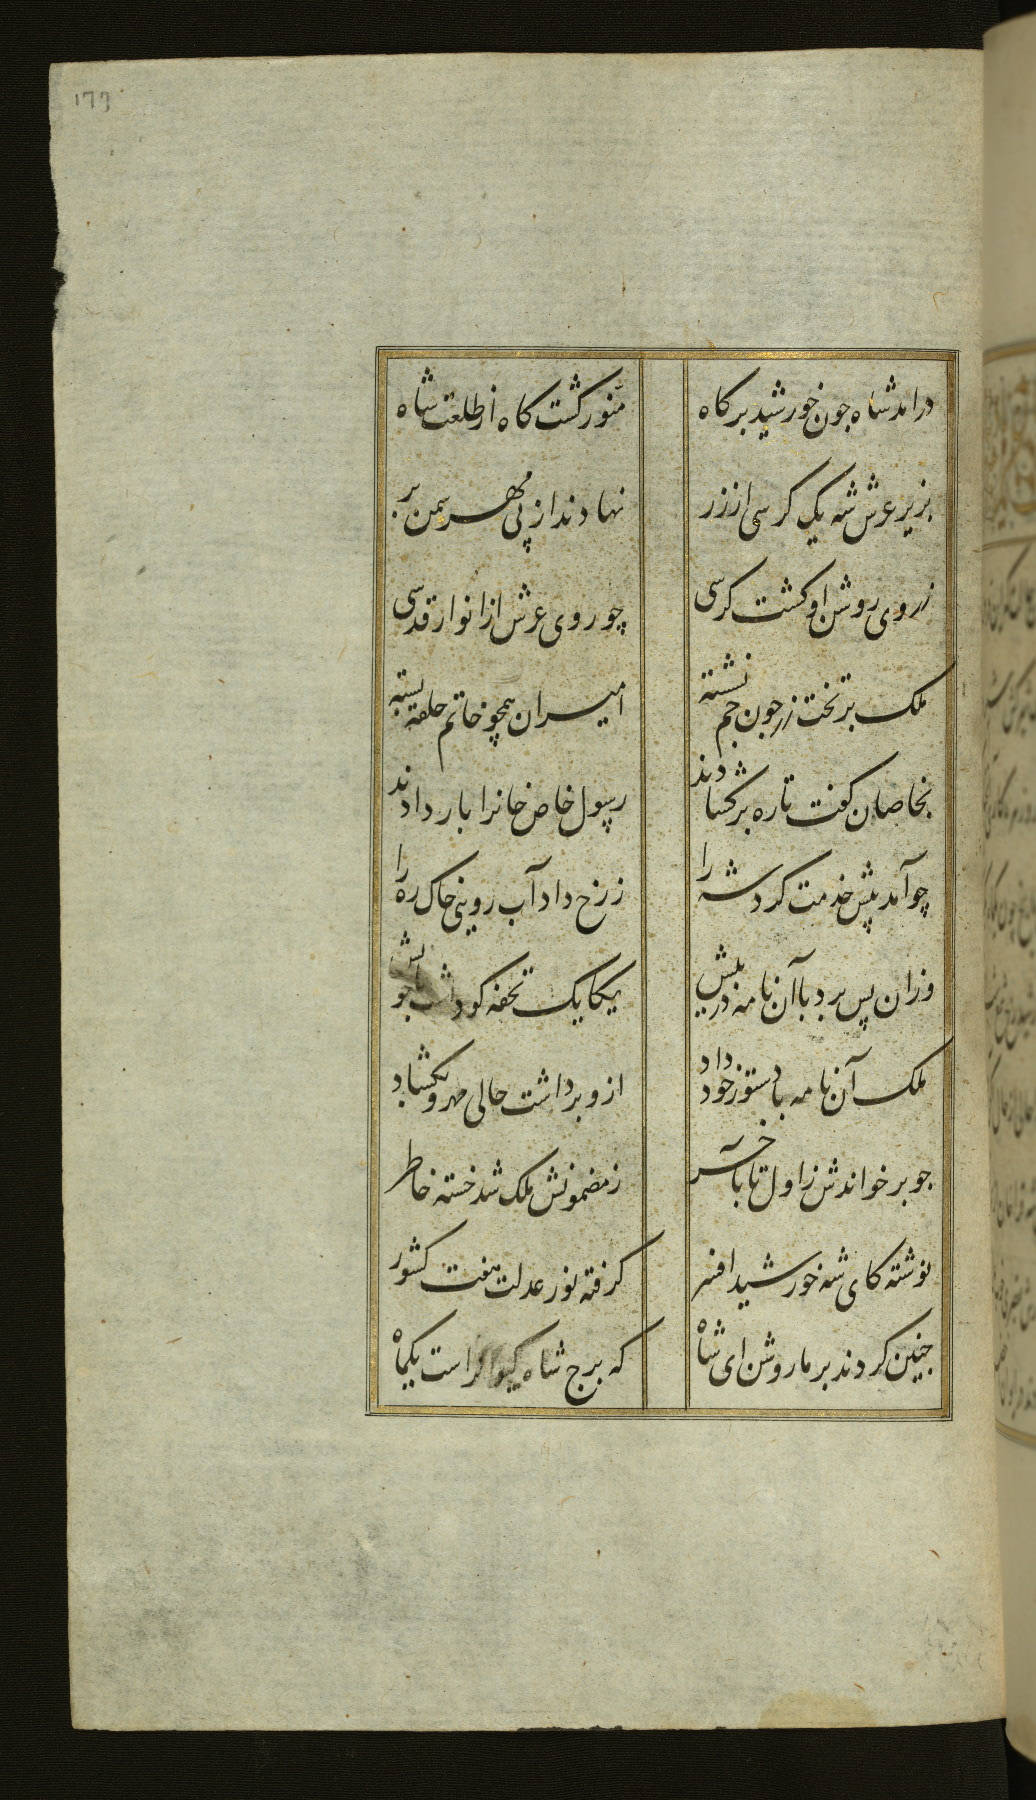 ١٢٦
درامد شاه جون خورشید بر کاه
منور کشت کاه از طلعت شاه
بزیر عرش شه یک کرسی از زر
نهادند از پی مهر سمن بر
ز روی روشن او کشت کرسی
چو روی عرش از انوار قدسی
ملک بر تخت زر جون جم نشسته
امیران همچو خاتم حلقه بسته
بخاصان کفت تا ره بر کشادند
رسول خاص خانرا بار دادند
چو آمد پیش خدمت کرد شه را
ز رخ داد آب رویی خاک ره را
وزان پس برد با آن نامه در پیش
یکایک تحفه کو داشت
ملک آن نامه با دستور خود داد
ازو برداشت حالی مهر و بکشاد
جو بر خواندش ز اول تا بآخر
ز مضمونش ملک شد خسته خاطر
نوشته کای شه خورشید افسر
کرفته نور عدلت هفت کشور
جنین کردند بر ما روشن ای شاه
که برج شاه است یکماه